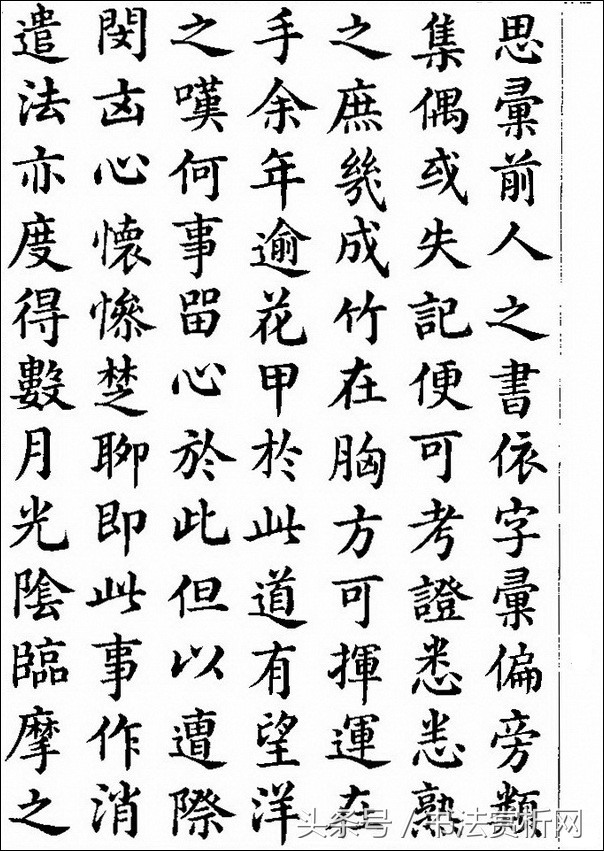 思彙前人之書依字彙偏旁類
集偶或失記便可考證悉悉熟
之庶幾成竹在胸方可揮運在
手余年逾花甲於此道有望洋
之嘆何事留心於此但以遭際
閔凶心懷慘楚聊即此事作消
遣法亦度得數月光陰臨摩之
头条号 / 书法赏析网